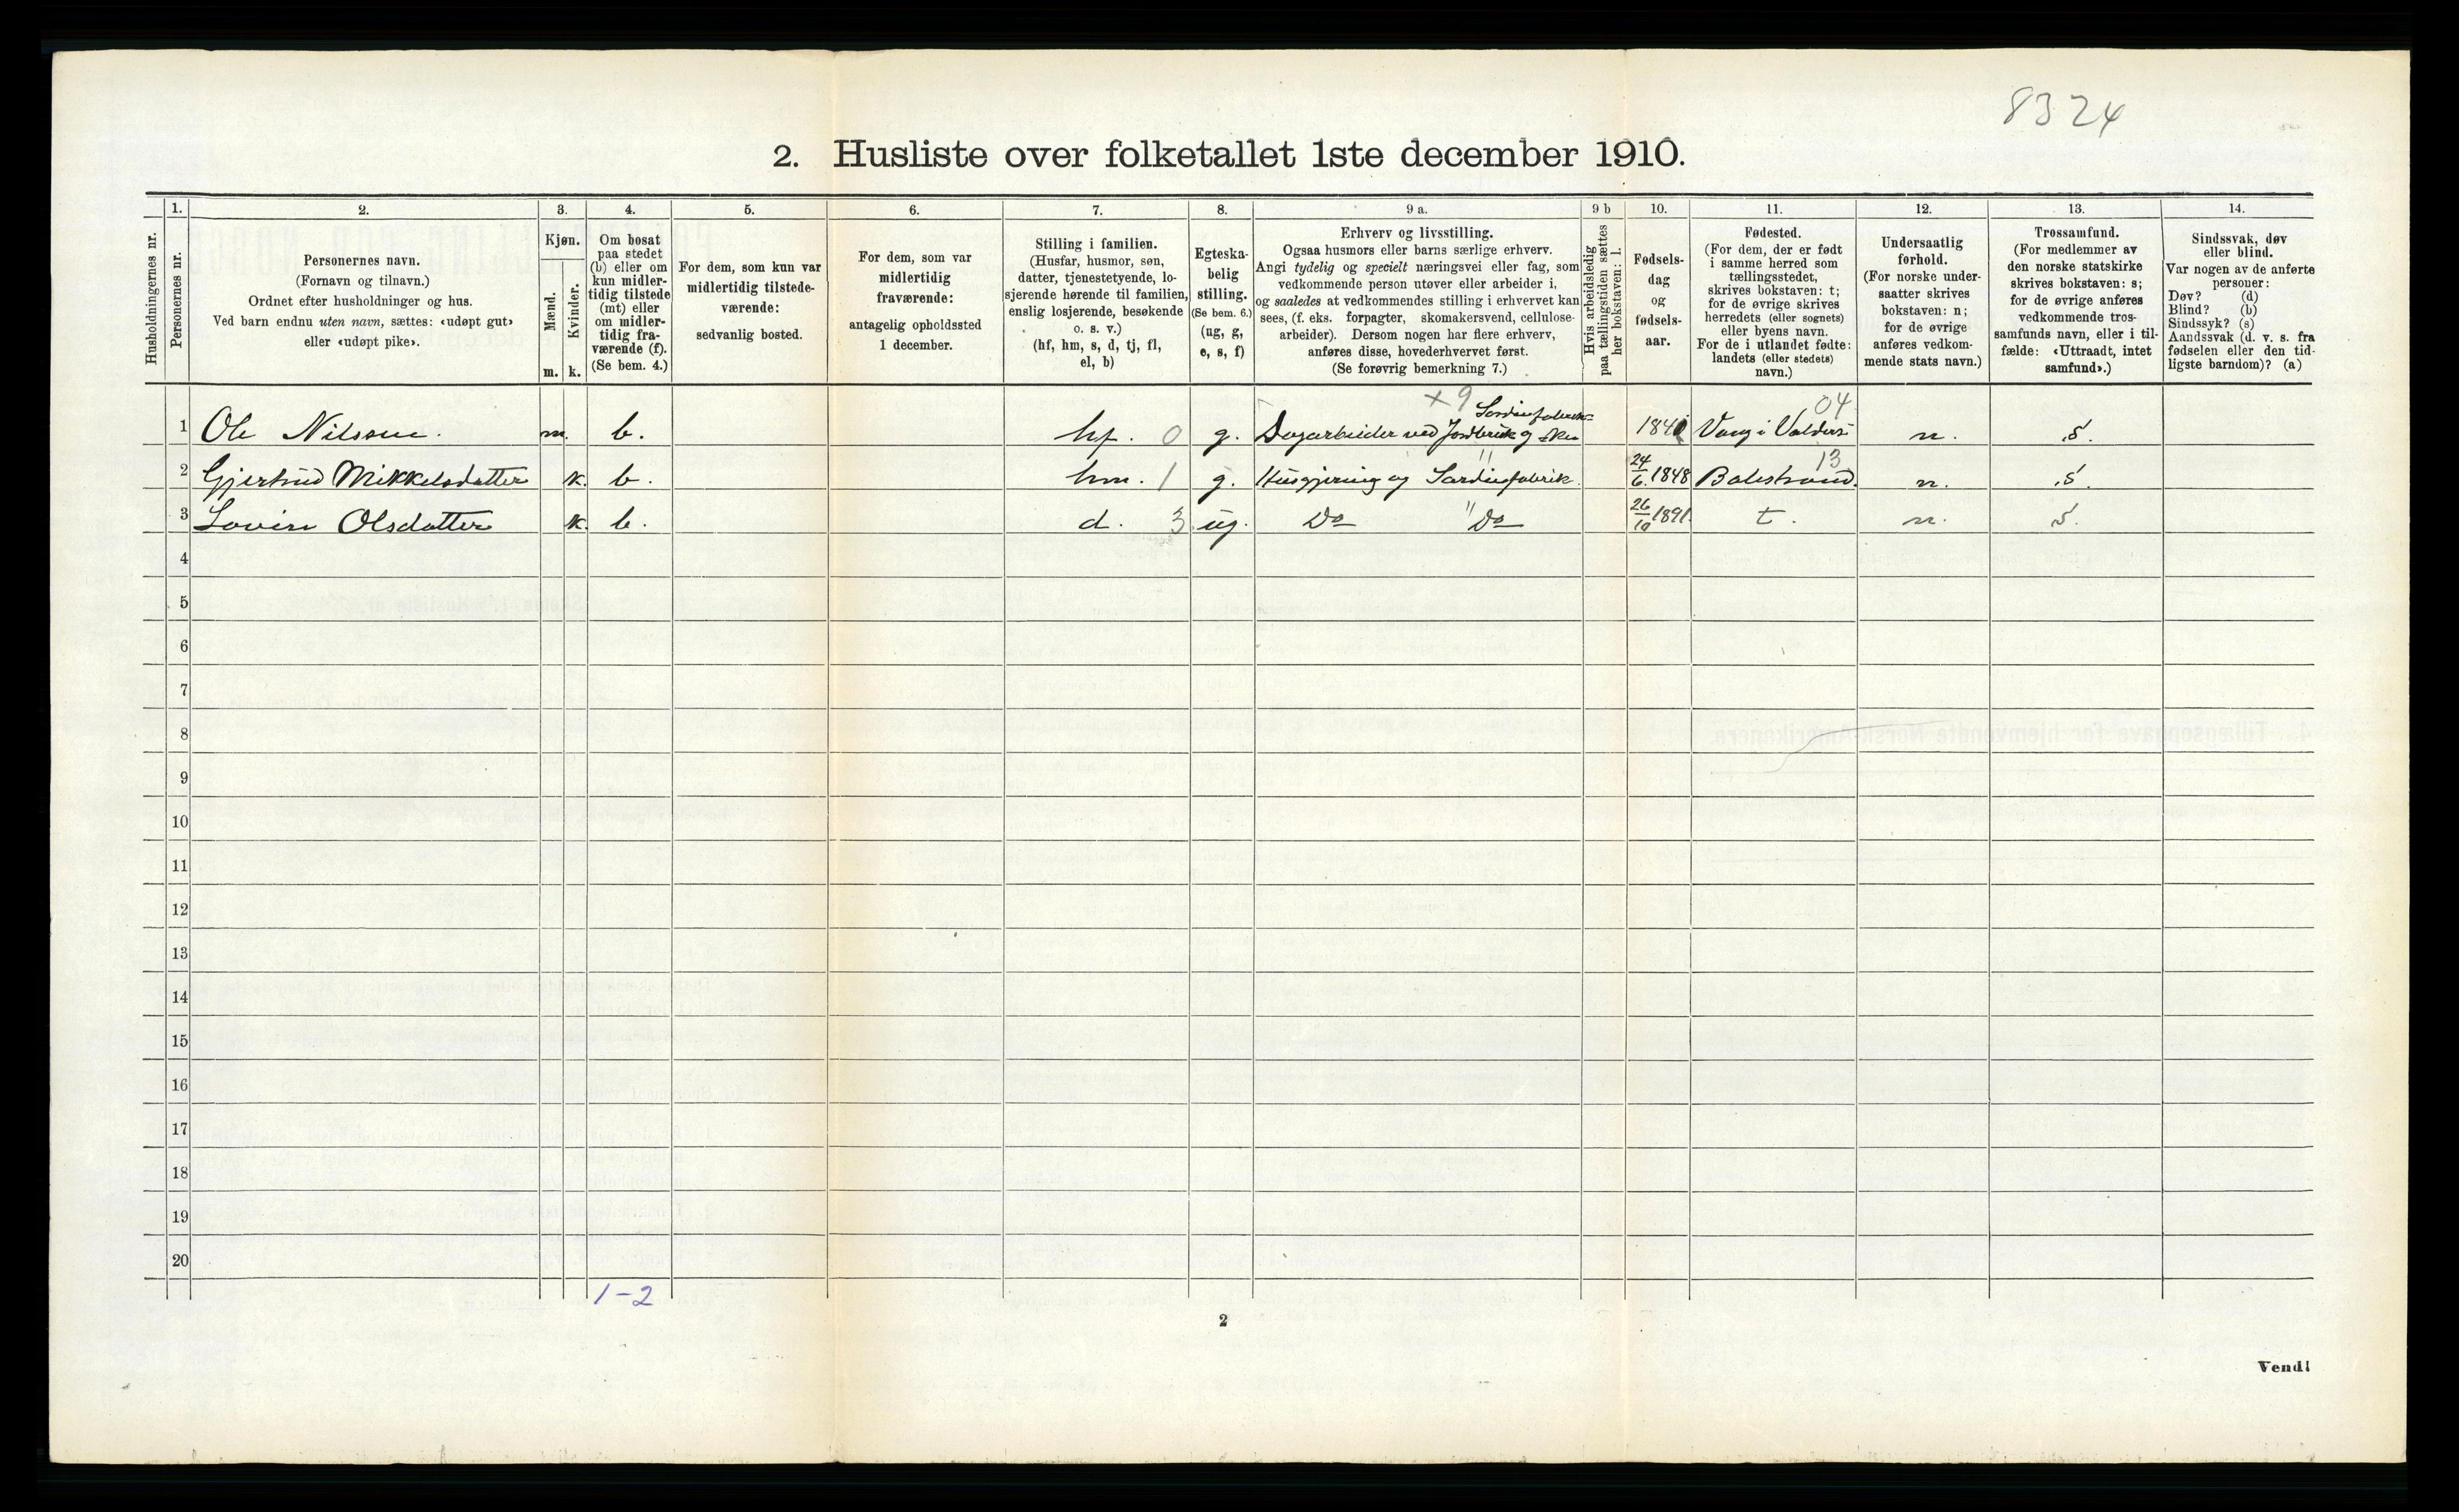 8324
2. Husliste over folketallet 1ste december 1910.
Husholdningernes nr.
1.
Personernes nr.
2.
Personernes navn.
(Fornavn og tilnavn.)
Ordnet efter husholdninger og hus.
Ved barn endnu uten navn, sættes: «udøpt gut»
eller «udøpt pike».
3.
Kjøn.
Mænd.
Kvinder.
m. k.
4.
Om bosat
paa stedet
(b) eller om
kun midler-
tidig tilstede
(mt) eller
om midler-
tidig fra-
værende (f).
(Se bem. 4.)
5.
For dem, som kun var
midlertidig tilstede-
værende:
sedvanlig bosted.
6.
For dem, som var
midlertidig
fraværende:
antagelig opholdssted
1 december.
7.
Stilling i familien.
(Husfar, husmor, søn,
datter, tjenestetyende, lo-
sjerende hørende til familien,
enslig losjerende, besøkende
o. s. v.)
(hf, hm, s, d, tj, fl,
el, b)
8.
Egteska-
belig
stilling.
(Se bem. 6.)
(ug, g,
e, s, f)
9 a.
Erhverv og livsstilling.
Ogsaa husmors eller barns særlige erhverv.
Angi tydelig og specielt næringsvei eller fag, som
vedkommende person utøver eller arbeider i,
og saaledes at vedkommendes stilling i erhvervet kan
sees, (f. eks. forpagter, skomakersvend, cellulose-
arbeider). Dersom nogen har flere erhverv,
anføres disse, hovederhvervet først.
(Se forøvrig bemerkning 7.)
9 b
Hvis arbeidsledig
paa tællingstiden sættes
her bokstaven: l.
10.
Fødsels-
dag
og
fødsels-
aar.
11.
Fødested.
(For dem, der er født
i samme herred som
tællingsstedet,
skrives bokstaven: t;
for de øvrige skrives
herredets (eller sognets)
eller byens navn.
For de i utlandet fødte:
landets (eller stedets)
navn.)
12.
Undersaatlig
forhold.
(For norske under-
saatter skrives
bokstaven: n;
for de øvrige
anføres vedkom-
mende stats navn.)
13.
Trossamfund.
(For medlemmer av
den norske statskirke
skrives bokstaven: s;
for de øvrige anføres
vedkommende tros-
samfunds navn, eller i til-
fælde: «Uttraadt, intet
samfund».)
14.
Sindssvak, døv
eller blind.
Var nogen av de anførte
personer:
Døv? (d)
Blind? (b)
Sindssyk? (s)
Aandssvak (d. v. s. fra
fødselen eller den tid-
ligste barndom)? (a)
x 9 Sardinfabrik= 04
1 Ole Nilssen. m. b. hf. 0 g. Dagarbeider ved Jordbruk og 184 Vang i Valders n. s.
13
2 Gjertrud Mikkelsdatter k. b. hm. 1 g. Husgjerning og Sardinfabrik. 24/6 1848 Balestrand. n. s.
3 Lovise Olsdatter k. b. d. 3 ug. Do " Do 26/10 1891. t. n. s.
4
5
6
7
8
9
10
11
12
13
14
15
16
17
18
19
20
1-2
2
Vend!